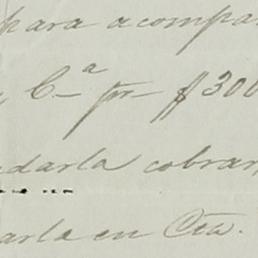 para acompa
C-a pr $300
darla cobran
arla en Cta.